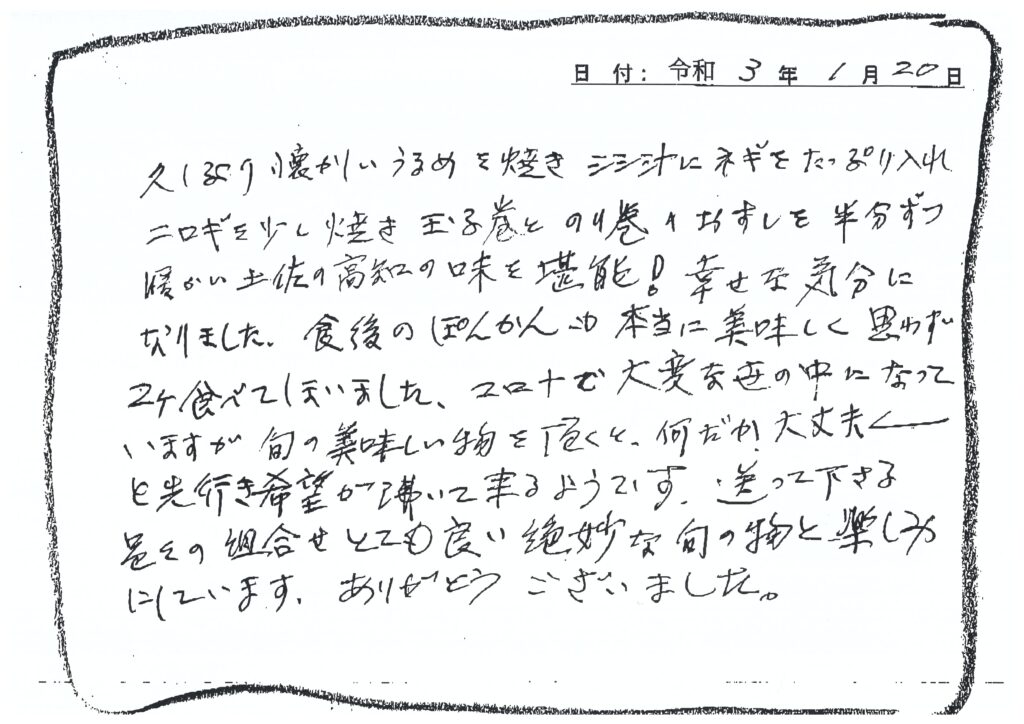 日付：令和 3 年 1 月 20 日
久しぶり懐かしいうるめを焼き シシ汁にネギをたっぷり入れ
ニロギを少し焼き 玉子巻と のり巻のおすしを半分ずつ
暖かい土佐の高知の味を堪能！ 幸せな気分に
なりました。食後のぽんかんも本当に美味しく思わず
2ケ食べてしまいました、コロナで大変な世の中になって
いますが旬の美味しい物を頂くと、何だか大丈夫く
と先行き希望が沸いて来るようです、送って下さる
品々の組合せとても良い絶妙な旬の物を楽しみ
にしています、ありがとうございました。